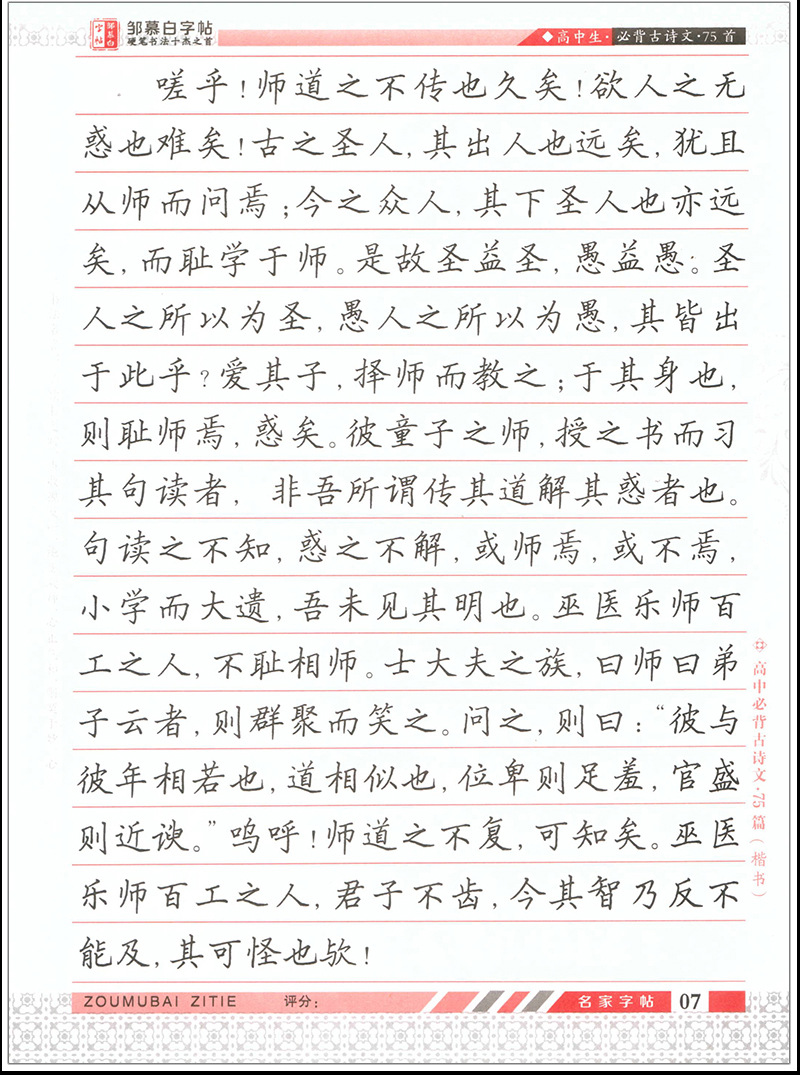 邹慕白字帖
硬笔书法十杰之首
邹慕白
字帖
◆高中生·必背古诗文·75首
嗟乎！师道之不传也久矣！欲人之无
惑也难矣！古之圣人，其出人也远矣，犹且
从师而问焉；今之众人，其下圣人也亦远
矣，而耻学于师。是故圣益圣，愚益愚。圣
人之所以为圣，愚人之所以为愚，其皆出
于此乎？爱其子，择师而教之；于其身也，
则耻师焉，惑矣。彼童子之师，授之书而习
其句读者，非吾所谓传其道解其惑者也。
句读之不知，惑之不解，或师焉，或不焉，
小学而大遗，吾未见其明也。巫医乐师百
工之人，不耻相师。士大夫之族，曰师曰弟
子云者，则群聚而笑之。问之，则曰：“彼与
彼年相若也，道相似也，位卑则足羞，官盛
则近谀。”呜呼！师道之不复，可知矣。巫医
乐师百工之人，君子不齿，今其智乃反不
能及，其可怪也欤！
高中必背古诗文·75篇（楷书）
ZOUMUBAI ZITIE 评分：
名家字帖 07